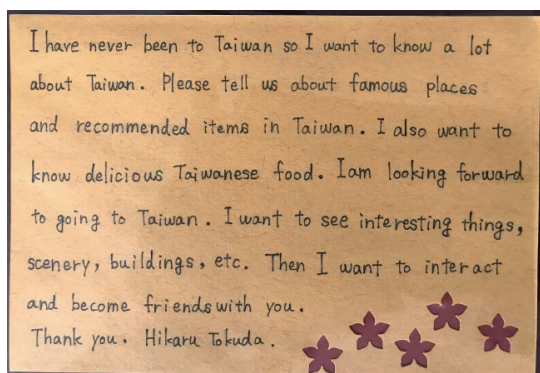 I have never been to Taiwan so I want to know a lot
about Taiwan. Please tell us about famous places
and recommended items in Taiwan. I also want to
know delicious Taiwanese food. I am looking forward
to going to Taiwan. I want to see interesting things,
scenery, buildings, etc. Then I want to interact
and become friends with you.
Thank you. Hikaru Tokuda.